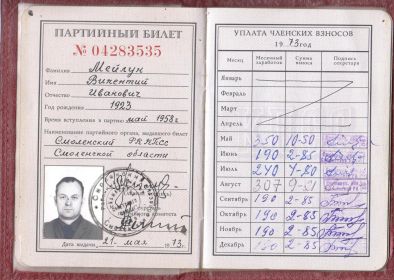 ПАРТИЙНЫЙ БИЛЕТ
№ 04283535
Фамилия Мейлун
Имя Викентий
Отчество Иванович
Год рождения 1923
Время вступления в партию май 1958 г
Наименование партийного органа, выдавшего билет
Смоленский РК КПСС
Смоленской области
Дата выдачи 21 мая 1973 г.
УПЛАТА ЧЛЕНСКИХ ВЗНОСОВ
1973 год
Месяц Месячный заработок Сумма взноса Подпись секретаря
Январь
Февраль
Март
Апрель
Май 350 10-50
Июнь 190 2-85
Июль 240 4-80
Август 307 9-21
Сентябрь 190 2-85
Октябрь 190 2-85
Ноябрь 190 2-85
Декабрь 190 2-85